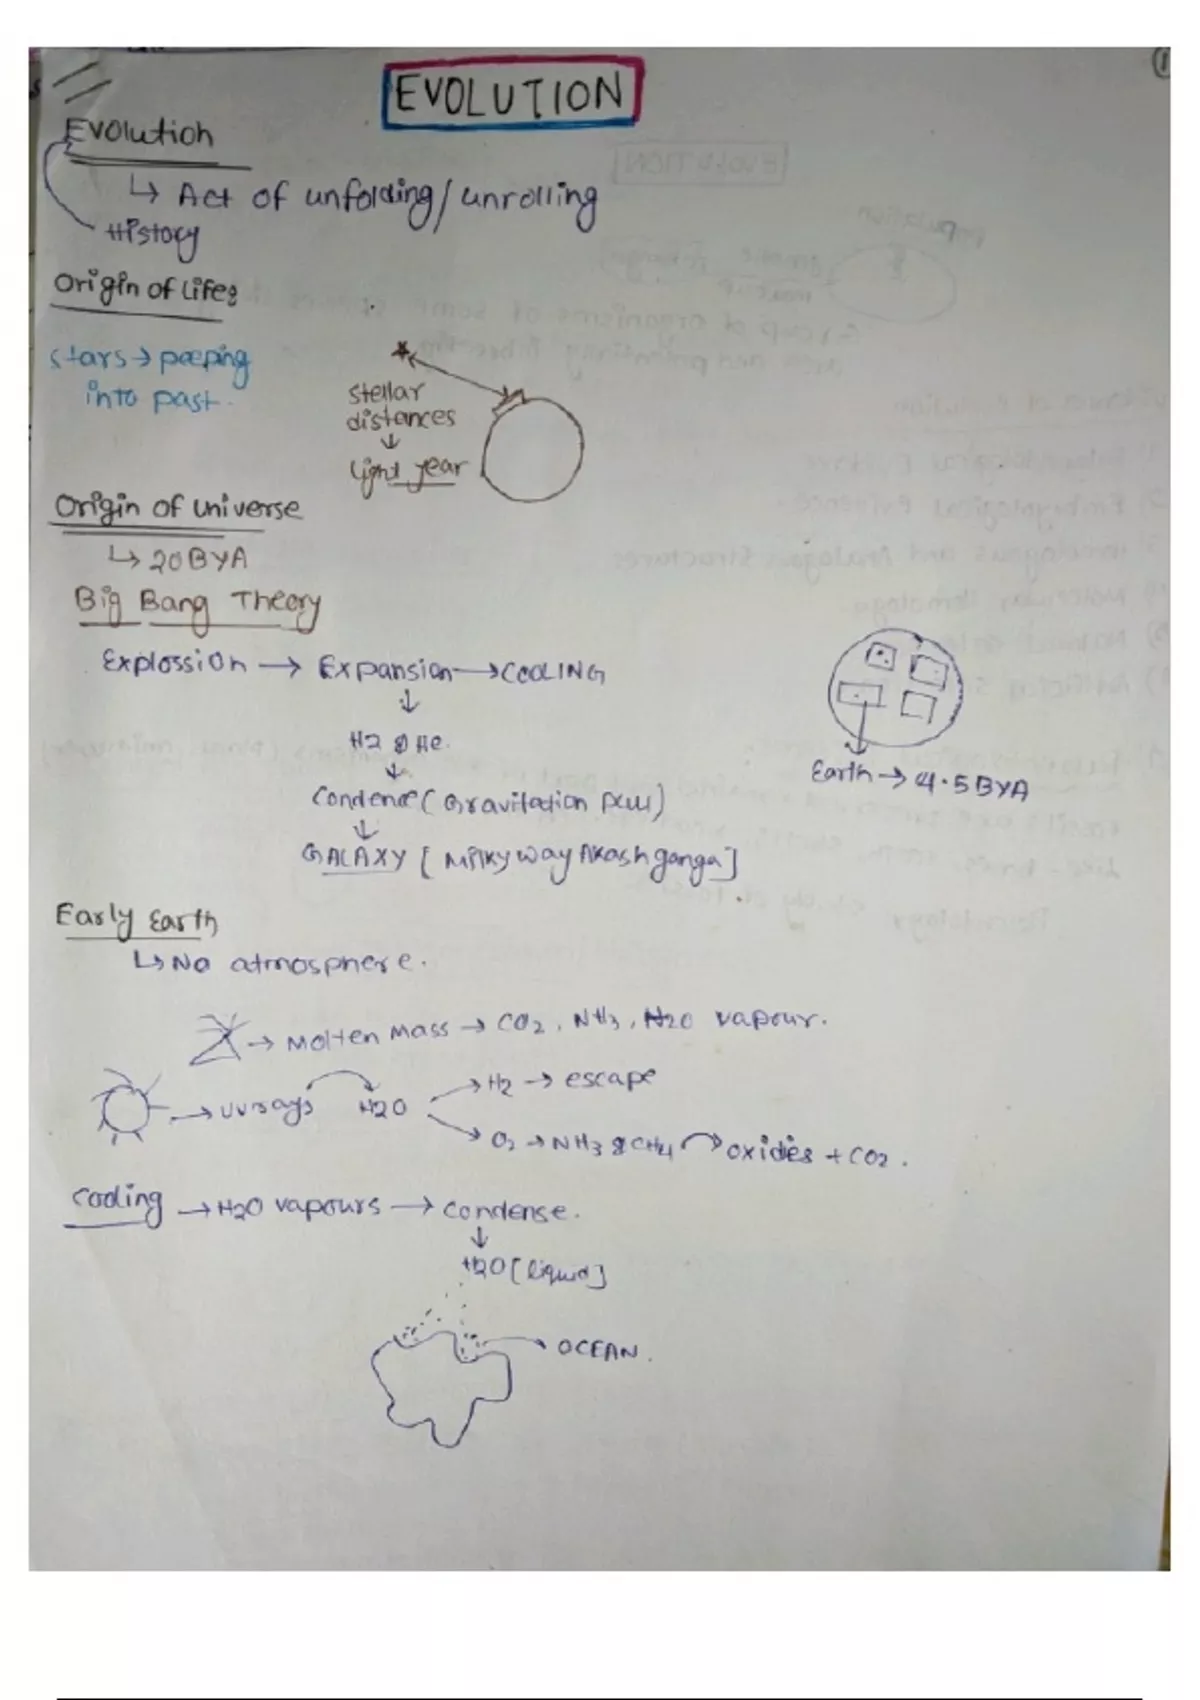 EVOLUTION
Evolution
↳ Act of unfolding/unrolling
History
Origin of Life:
stars → peeping
into past.
stellar
distances
↓
light year
Origin of universe
↳ 20 BYA
Big Bang Theory
Explossion → Expansion → COOLING
↓
H2 & He.
↓
Condence (Gravitation
↓
GALAXY [Milkyway Akashganga]
Earth → 4.5BYA
Early Earth
↳ No atmosphere.
→ Molten Mass → CO2, NH3, H2O vapour.
→ UV rays H2O → H2 → escape
→ O2 → NH3 & CH4 → oxides + CO2.
Cooling → H2O vapours → condense.
↓
H2O [liquid]
OCEAN.